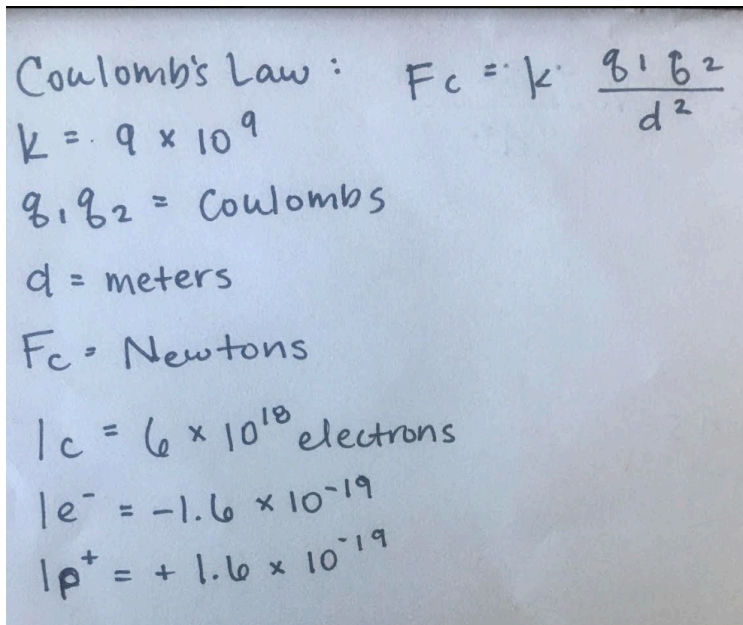 Coulomb's Law : Fc = k q1 q2 / d²
k = 9 × 10⁹
q1 q2 = Coulombs
d = meters
Fc = Newtons
1c = 6 × 10¹⁸ electrons
1e⁻ = -1.6 × 10⁻¹⁹
1p⁺ = + 1.6 × 10⁻¹⁹